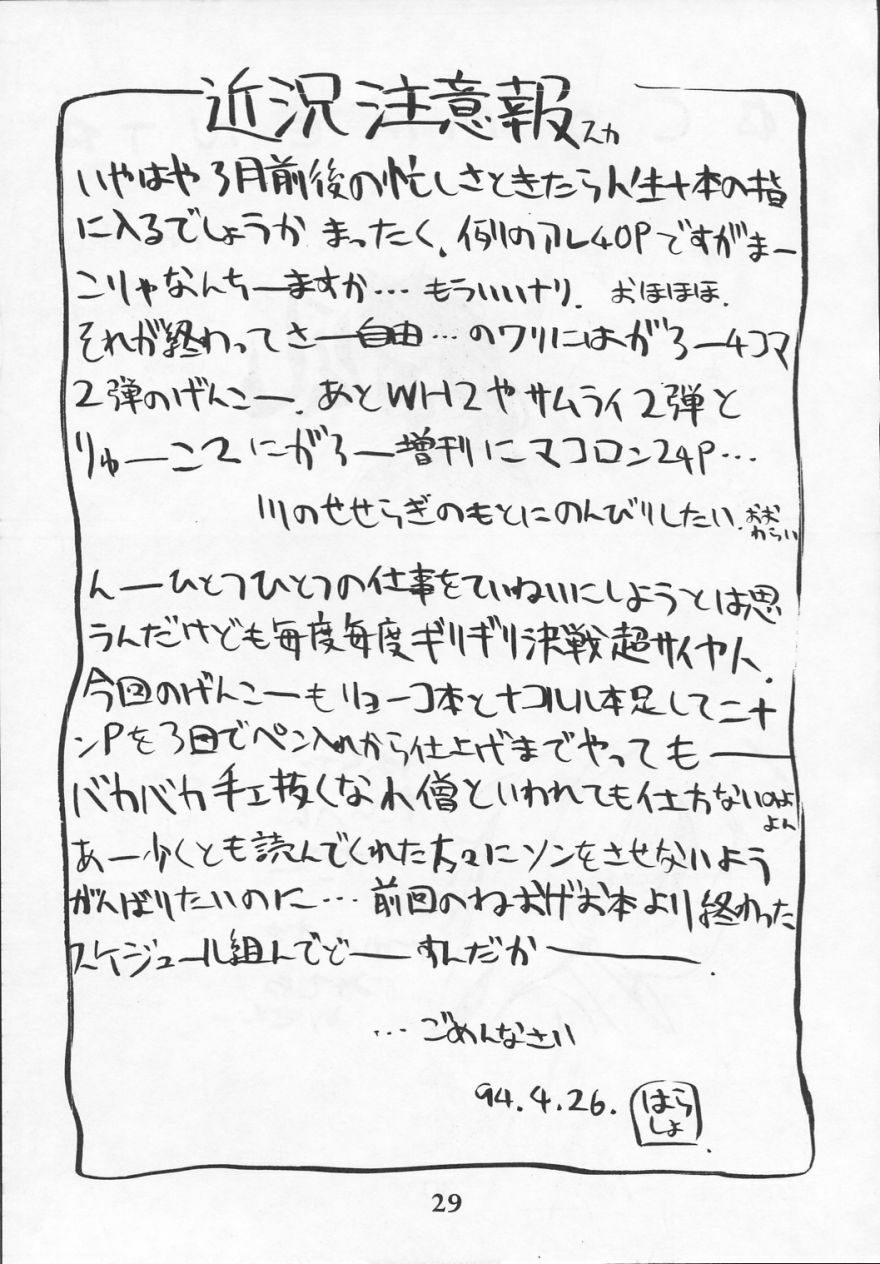 近況注意報スカ
いやはや3月前後の忙しさときたら人生十本の指
に入るでしょうか まったく、例のアレ40Pですがまー
こりゃなんちーますか… もういいナリ. おほほほ.
それが終わってさー自由…のワリにはがろー4コマ
2弾のげんこー. あとWH2やサムライ2弾と
りゅーこ2にがろー増刊にマコロン24P…
川のせせらぎのもとにのんびりしたい.おお
わらい
んーひとつひとつの仕事をていねいにしようとは思
うんだけども毎度毎度ギリギリ決戦超サイヤ人.
今回のげんこーもリョーコ本とナコルル本足して二十
ンPを3日でペン入れから仕上げまでやってもーー
バカバカ手ェ抜くなれ僧といわれても仕方ないのよ
よん
あー少くとも読んでくれた方々にソンをさせないよう
がんばりたいのに… 前回のねおげお本より終わった
スケジュール組んでどーーすんだかーーーー.
…ごめんなさい
94.4.26. はら
しょ
29